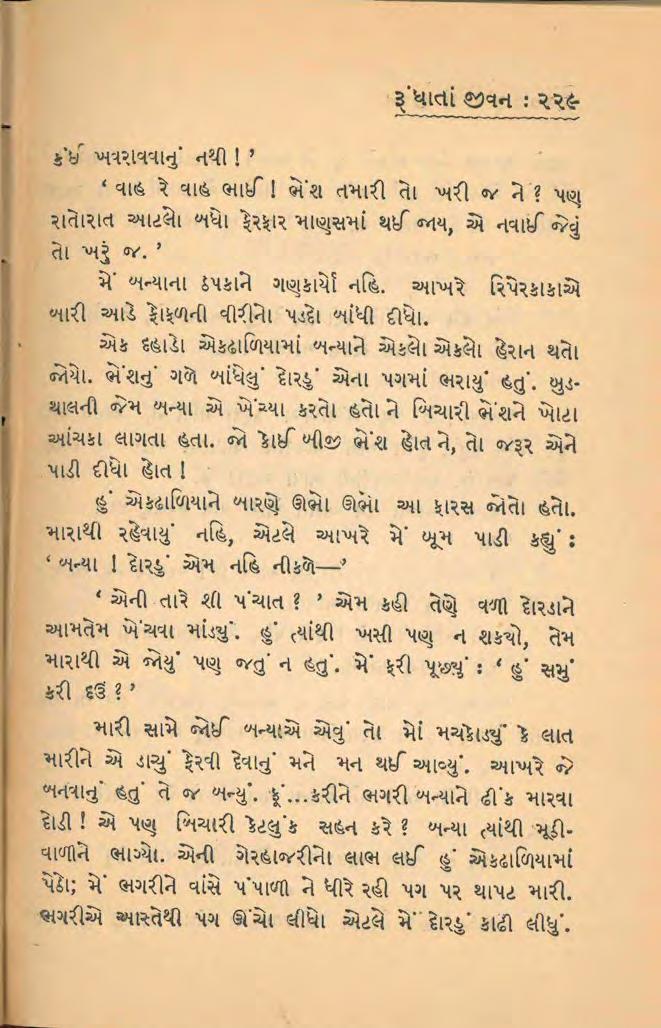 રૂંધાતાં જીવન : ૨૨૯
કંઈ ખવરાવવાનું નથી ! ’
‘ વાહ રે વાહ ભાઈ ! ભેંશ તમારી તો ખરી જ ને ? પણ
રાતોરાત આટલો બધો ફેરફાર માણસમાં થઈ જાય, એ નવાઈ જેવું
તો ખરું જ. ’
મેં બન્યાના ઠપકાને ગણકાર્યો નહિ. આખરે રિપેરકાકાએ
બારી આડે ફોફળની વીરીનો પડદો બાંધી દીધો.
એક દહાડો એકઢાળિયામાં બન્યાને એકલો એકલો હેરાન થતો
જોયો. ભેંશનું ગળે બાંધેલું દોરડું એના પગમાં ભરાયું હતું. બુડ-
થાલની જેમ બન્યા એ ખેંચ્યા કરતો હતો ને બિચારી ભેંશને ખોટા
આંચકા લાગતા હતા. જો કોઈ બીજી ભેંશ હોત ને, તો જરૂર એને
પાડી દીધો હોત !
હું એકઢાળિયાને બારણે ઊભો ઊભો આ ફારસ જોતો હતો.
મારાથી રહેવાયું નહિ, એટલે આખરે મેં બૂમ પાડી કહ્યું :
‘ બન્યા ! દોરડું એમ નહિ નીકળે—’
‘ એની તારે શી પંચાત ? ’ એમ કહી તેણે વળી દોરડાને
આમતેમ ખેંચવા માંડ્યું. હું ત્યાંથી ખસી પણ ન શકયો, તેમ
મારાથી એ જોયું પણ જતું ન હતું. મેં ફરી પૂછ્યું : ‘ હું સમું
કરી દઉં ? ’
મારી સામે જોઈ બન્યાએ એવું તો મોં મચકોડ્યું કે લાત
મારીને એ ડાચું ફેરવી દેવાનું મને મન થઈ આવ્યું. આખરે જે
બનવાનું હતું તે જ બન્યું. ફૂં...કરીને ભગરી બન્યાને ઢીંક મારવા
દોડી ! એ પણ બિચારી કેટલુંક સહન કરે ? બન્યા ત્યાંથી મૂઠી-
વાળીને ભાગ્યો. એની ગેરહાજરીનો લાભ લઈ હું એકઢાળિયામાં
પેઠો; મેં ભગરીને વાંસે પંપાળી ને ધીરે રહી પગ પર થાપટ મારી.
ભગરીએ આસ્તેથી પગ ઊંચો લીધો એટલે મેં દોરડું કાઢી લીધું.